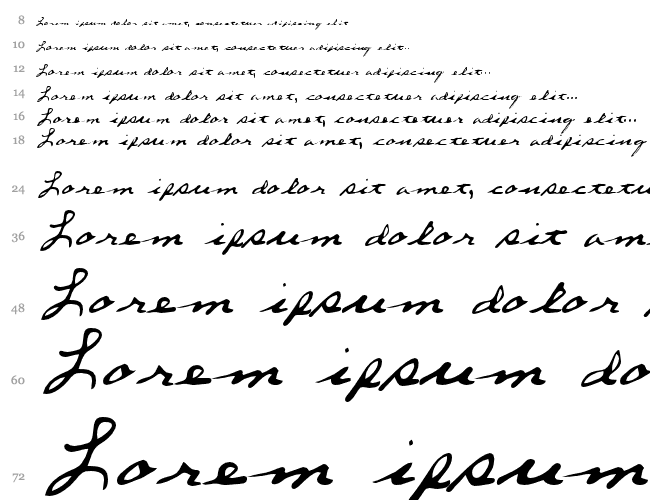 8 Lorem ipsum dolor sit amet, consectetuer adipiscing elit
10 Lorem ipsum dolor sit amet, consectetuer adipiscing elit..
12 Lorem ipsum dolor sit amet, consectetuer adipiscing elit..
14 Lorem ipsum dolor sit amet, consectetuer adipiscing elit...
16 Lorem ipsum dolor sit amet, consectetuer adipiscing elit...
18 Lorem ipsum dolor sit amet, consectetuer adipiscing
24 Lorem ipsum dolor sit amet, consectetu
36 Lorem ipsum dolor sit am
48 Lorem ipsum dolor
60 Lorem ipsum do
72 Lorem ipsum